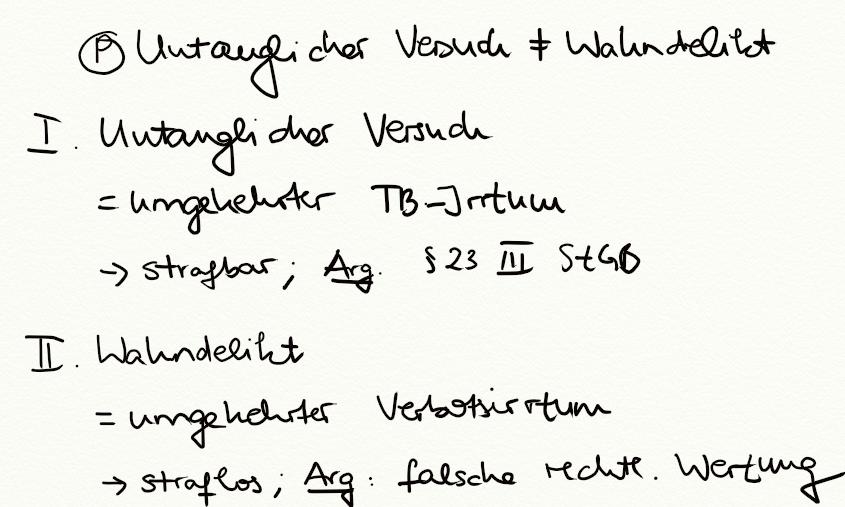 Ⓟ Untauglicher Versuch ≠ Wahndelikt
I. Untauglicher Versuch
= umgekehrter TB-Irrtum
→ strafbar; Arg. § 23 III StGB
II. Wahndelikt
= umgekehrter Verbotsirrtum
→ straflos; Arg: falsche rechtl. Wertung